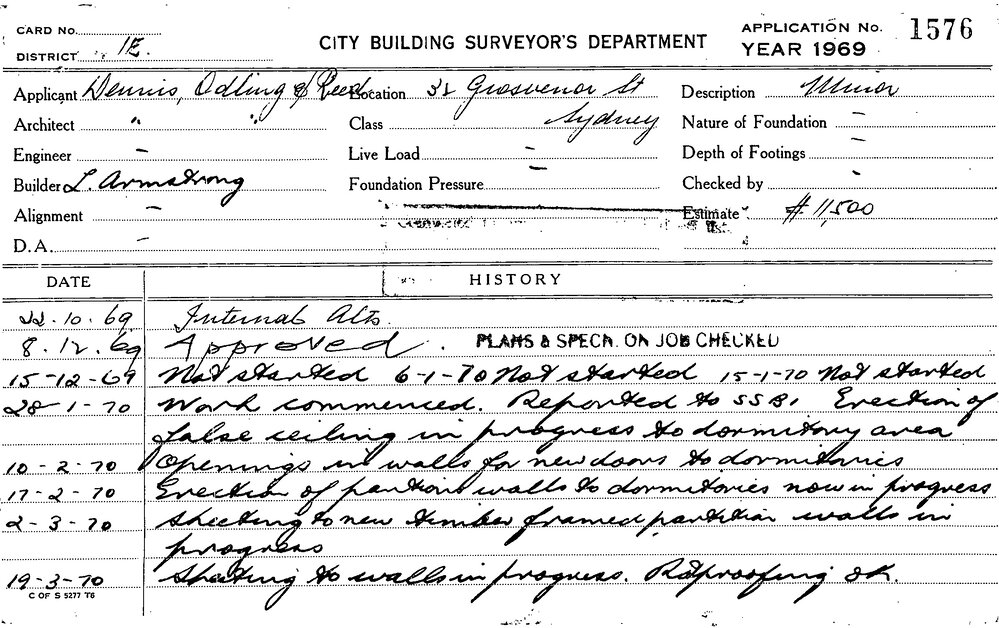 CARD No.
DISTRICT 1E.
CITY BUILDING SURVEYOR'S DEPARTMENT
APPLICATION No. 1576
YEAR 1969
Applicant Dennis, Odling & Reed
Location 32 Grosvenor St
Sydney
Description Minor
Architect " "
Class
Nature of Foundation –
Engineer –
Live Load –
Depth of Footings –
Builder L. Armstrong
Foundation Pressure –
Checked by -
Alignment –
Estimate $11,500
D.A. –
DATE
HISTORY
22.10.69 Internal Alts
8.12.69 Approved. PLANS & SPECN. ON JOB CHECKED
15-12-69 Not started 6-1-70 Not started 15-1-70 Not started
28-1-70 Work commenced. Reported to SSBI Erection of
false ceiling in progress to dormitory area
10-2-70 Openings in walls for new doors to dormitories
17-2-70 Erection of partion walls to dormitories now in progress
2-3-70 Sheeting to new timber framed partition walls in
progress
19-3-70 Sheeting to walls in progress. Ratproofing OK.
C OF S 5277 T6